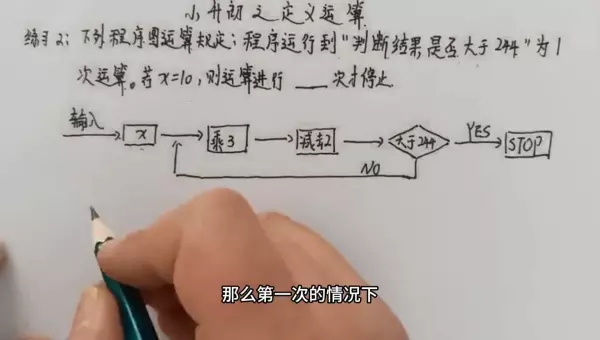 小升初之定义运算
练习2:下列程序图运算规定:程序运行到"判断结果是否大于244"为1
次运算。若x=10,则运算进行___次才停止
输入 x 乘3 减去2 大于244 YES STOP
NO
那么第一次的情况下